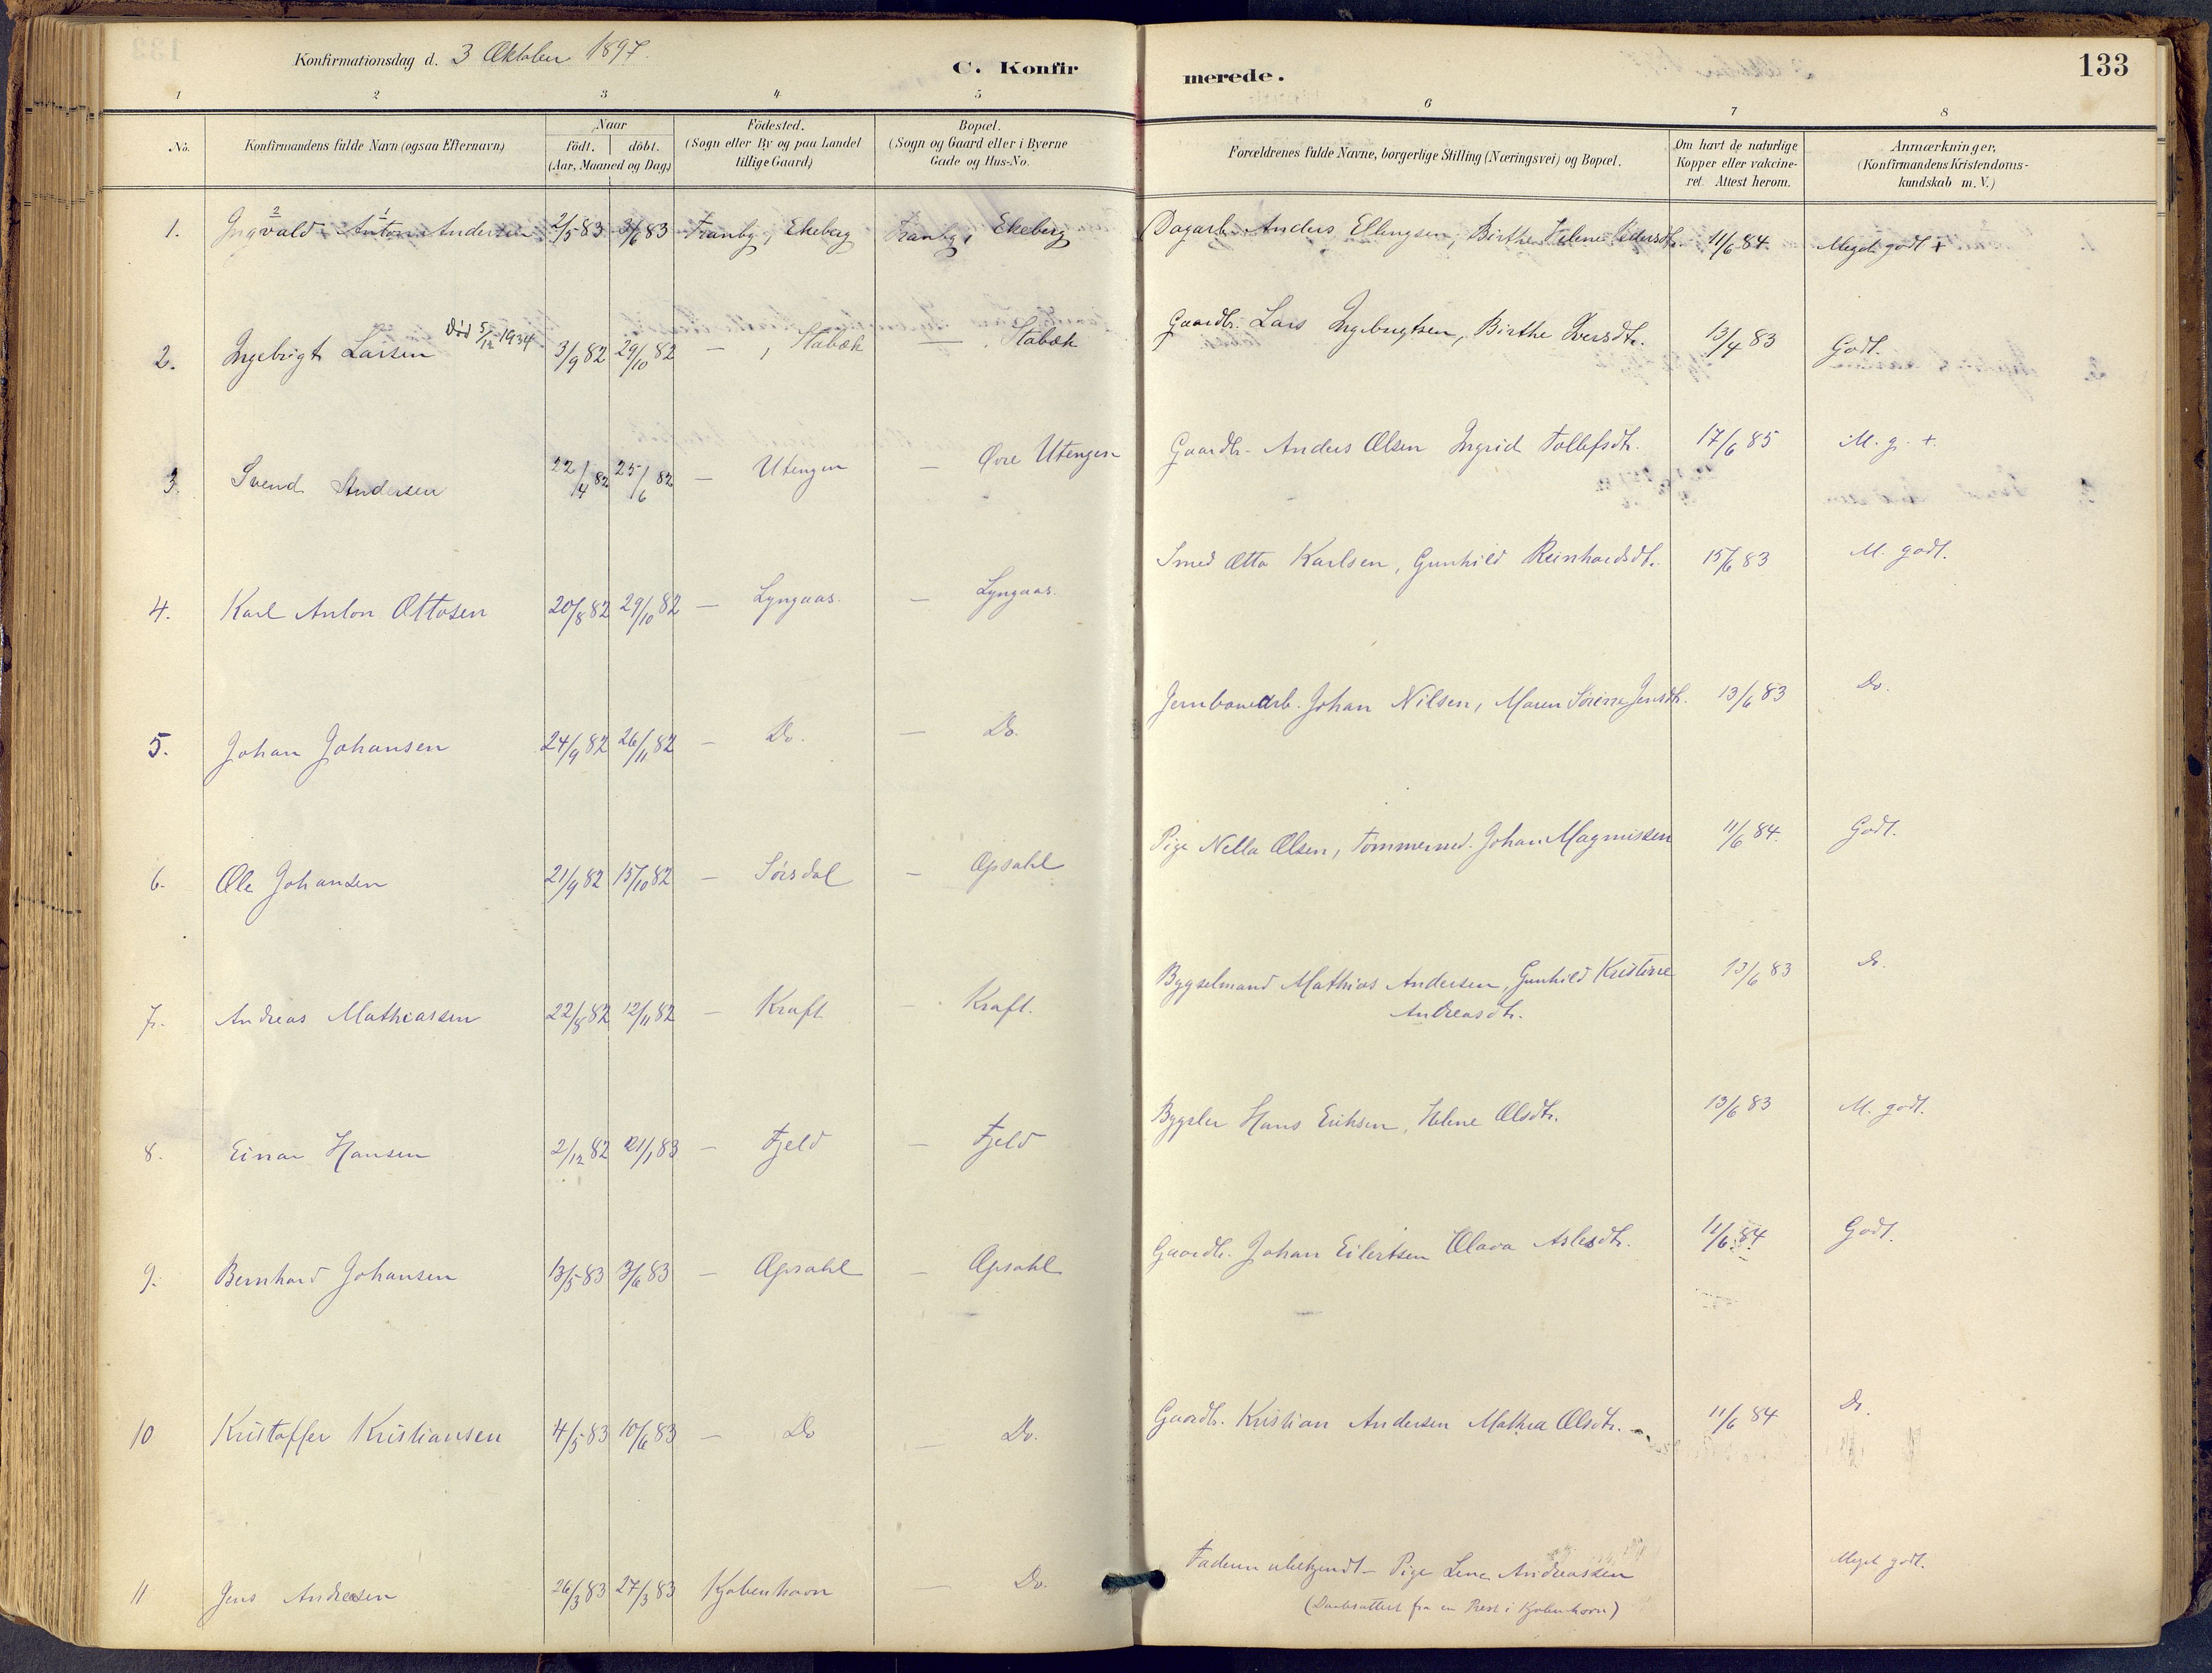 Konfirmationsdag d. 3 Oktober 1897.
C. Konfirmerede.
133
1 2 3 4 5 6 7 8
No. Konfirmandens fulde Navn (ogsaa Efternavn) Naar födt. döbt. (Aar, Maaned og Dag) Födested. (Sogn eller By og paa Landet tillige Gaard) Bopæl. (Sogn og Gaard eller i Byerne Gade og Hus-No. Forældrenes fulde Navne, borgerlige Stilling (Næringsvei) og Bopæl. Om havt de naturlige Kopper eller vakcineret. Attest herom. Anmærkninger, (Konfirmandens Kristendomskundskab m. V.)
1. Ingvald 2 Anton 1 Andersen 2/5 83 3/6 83 Tranby, Ekeberg Tranby, Ekeberg Dagarb. Anders Ellingsen, Birthe Helene Pedersdtr. 11/6 84 Meget godt +
2. Ingebrigt Larsen Död 5/12 1934 3/9 82 29/10 82 — , Stabæk — , Stabæk Gaardbr. Lars Ingebrigtsen, Birthe Iversdtr. 13/4 83 Godt.
3. Svend Andersen 22/4 82 25/6 82 — Utengen — Øvre Utengen Gaardbr. Anders Olsen Ingrid Tollefsdtr. 17/6 85 M. g. +.
4. Karl Anton Ottosen 20/8 82 29/10 82 — Lyngaas. — Lyngaas. Smed Otto Karlsen, Gunhild Reinhardsdt. 15/6 83 M. godt.
5. Johan Johansen 24/9 82 26/11 82 — Do. — Do. Jernbanearb. Johan Nilsen, Maren Sørine Jensdtr. 13/6 83 Do.
6. Ole Johansen 21/9 82 15/10 82 — Sörsdal — Opsahl Pige Nella Olsen, Tømmermd. Johan Magnussen 11/6 84. Godt.
7. Andreas Mathiassen 22/8 82 12/11 82 — Kraft — Kraft. Bygselmand Mathias Andersen, Gunhild Kristine 13/6 83 Do.
Andreasdtr.
8. Einar Hansen 2/12 82 21/1 83 — Fjeld — Fjeld Bygsler Hans Eriksen, Helene Olsdtr. 13/6 83 M. godt.
9. Bernhard Johansen 13/5 83 3/6 83 — Opsahl — Opsahl Gaardbr. Johan Eilertsen Olava Aslesdtr. 11/6 84 Godt.
10 Kristoffer Kristiansen 4/5 83 10/6 83 — Do — Do. Gaardbr. Kristian Andersen Mathea Olsdtr. 11/6 84 Do.
11 Jens Andreasen 26/3 83 27/3 83 Kjøbenhavn — Do. Faderen ubekjendt — Pige Lene Andreassen Meget godt.
(Daabsattest fra en Prest i Kjøbenhavn)